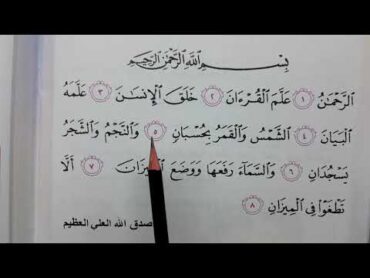 بِسْمِ ٱللَّهِ ٱلرَّحْمَٰنِ ٱلرَّحِيمِ
ٱلرَّحْمَٰنُ ١ عَلَّمَ ٱلْقُرْءَانَ ٢ خَلَقَ ٱلْإِنسَٰنَ ٣ عَلَّمَهُ
ٱلْبَيَانَ ٤ ٱلشَّمْسُ وَٱلْقَمَرُ بِحُسْبَانٍ ٥ وَٱلنَّجْمُ وَٱلشَّجَرُ
يَسْجُدَانِ ٦ وَٱلسَّمَآءَ رَفَعَهَا وَوَضَعَ ٱلْمِيزَانَ ٧ أَلَّا
تَطْغَوْا۟ فِى ٱلْمِيزَانِ ٨
صدق الله العلي العظيم